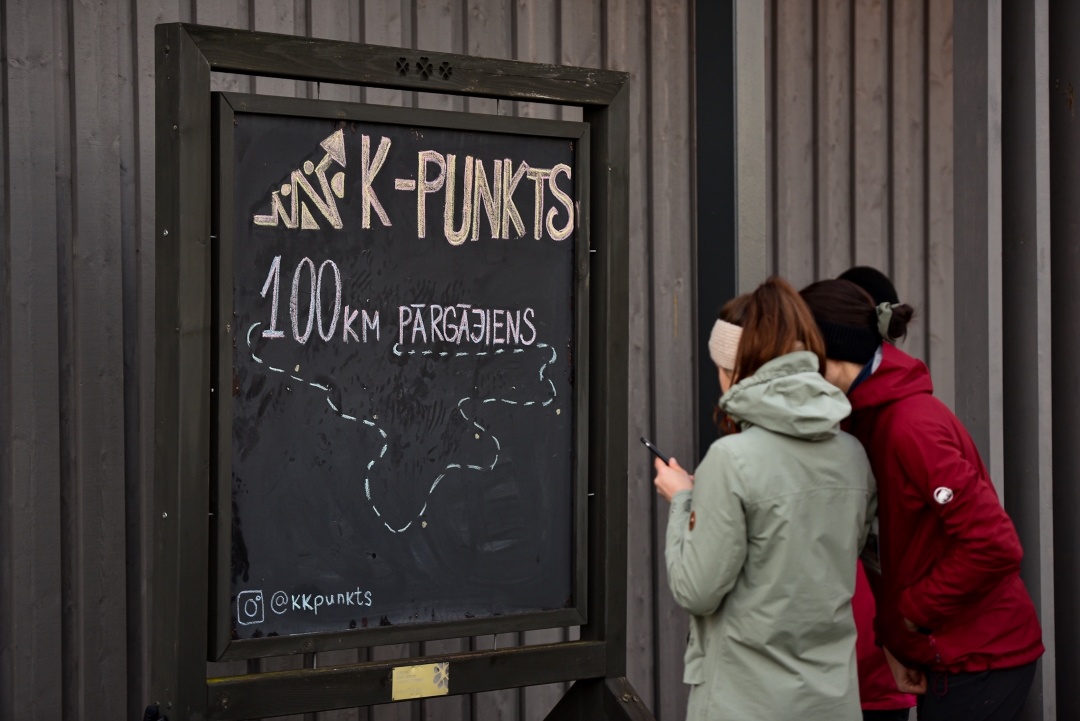 K-PUNKTS
100KM PĀRGĀJIENS
@kkpunkts